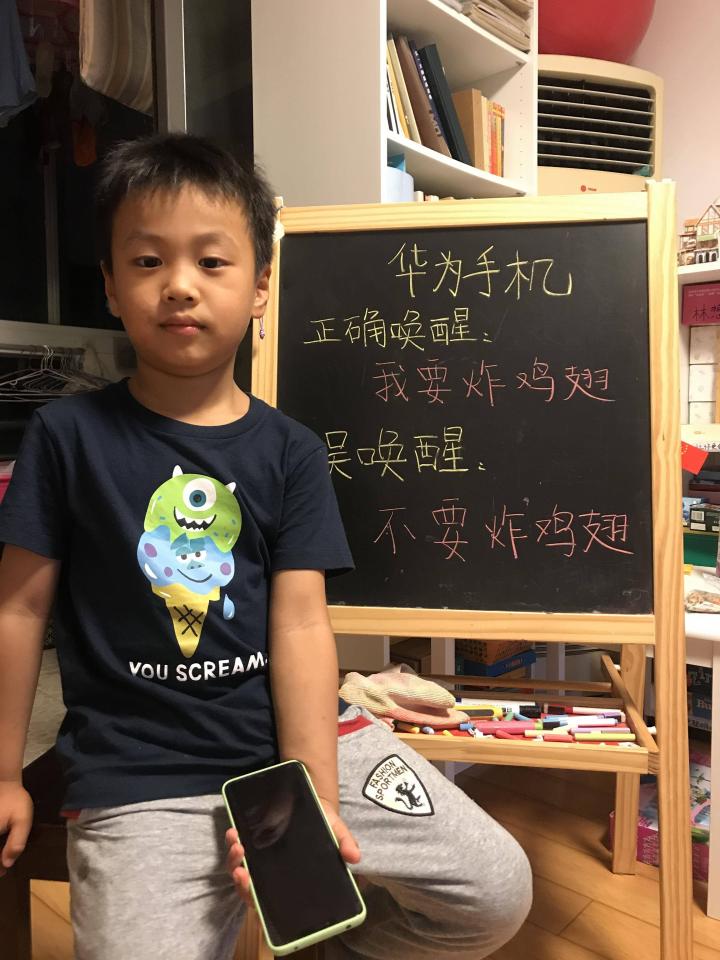 华为手机
正确唤醒：
我要炸鸡翅
误唤醒：
不要炸鸡翅
YOU SCREAM
FASHION
SPORTMEN
林